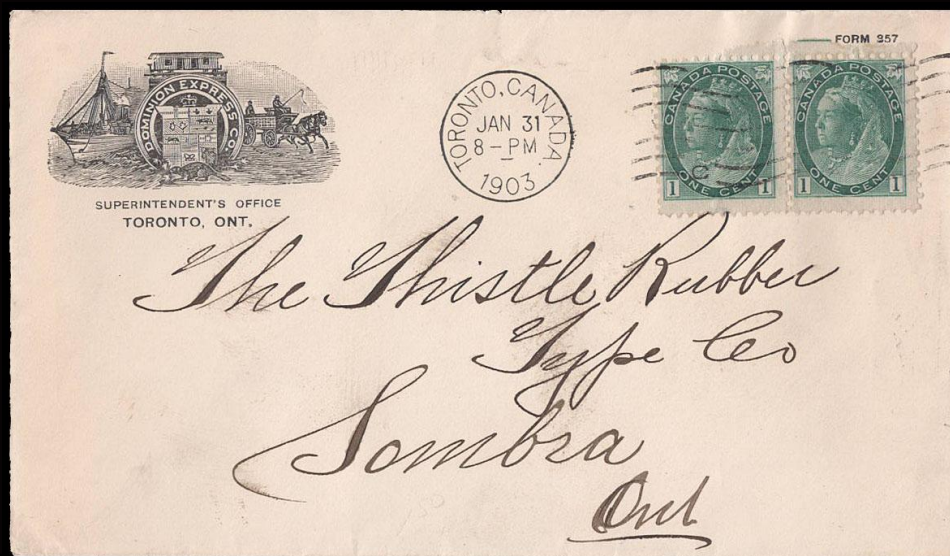 FORM 257
DOMINION EXPRESS CO.
SUPERINTENDENT'S OFFICE
TORONTO, ONT.
TORONTO, CANADA
JAN 31
8-PM
1903
CANADA POSTAGE
1 ONE CENT 1
CANADA POSTAGE
1 ONE CENT 1
C
The Thistle Rubber
Type Co
Sombra
Ont